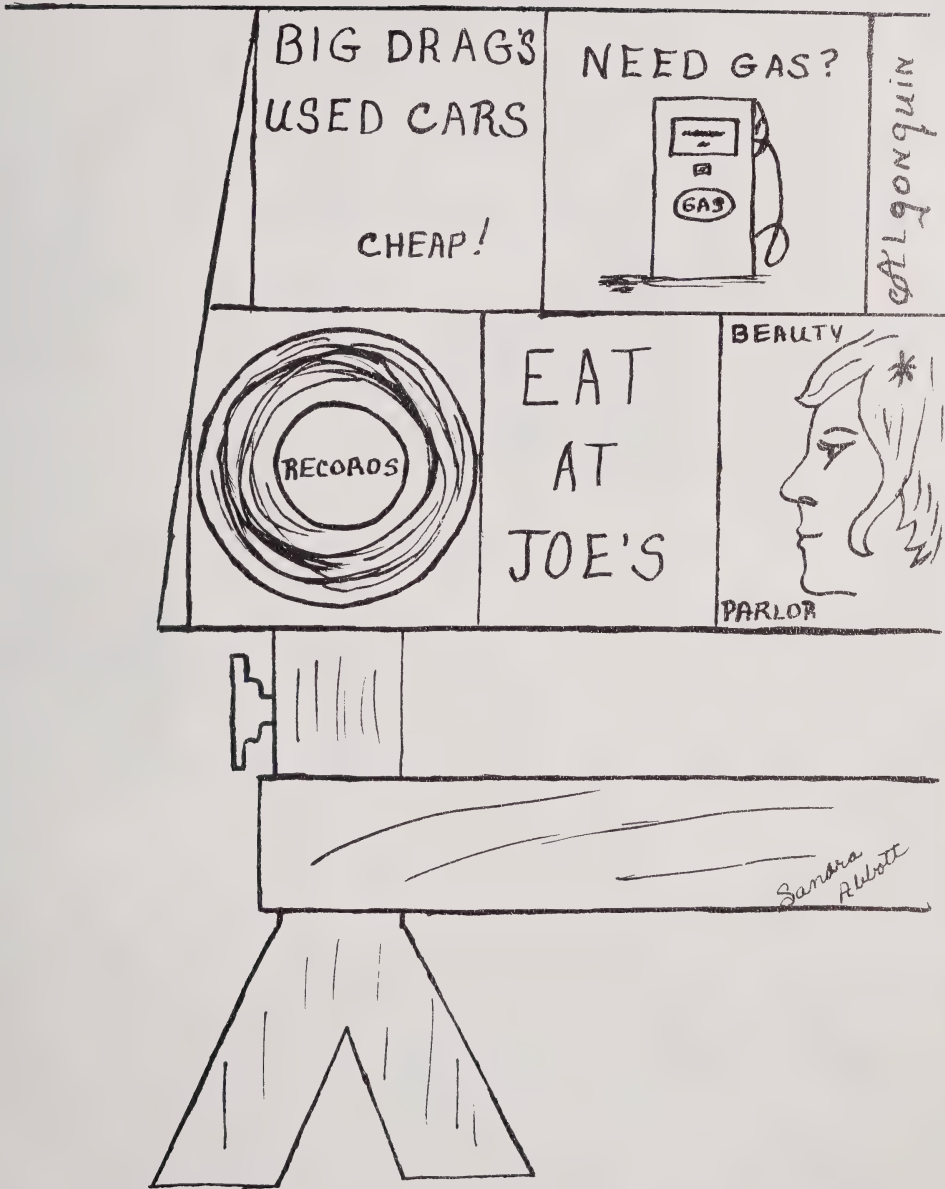 BIG DRAG'S
USED CARS
CHEAP!
NEED GAS?
GAS
Algonquin
RECORDS
EAT
AT
JOE'S
BEAUTY
PARLOR
Sandra
Abbott